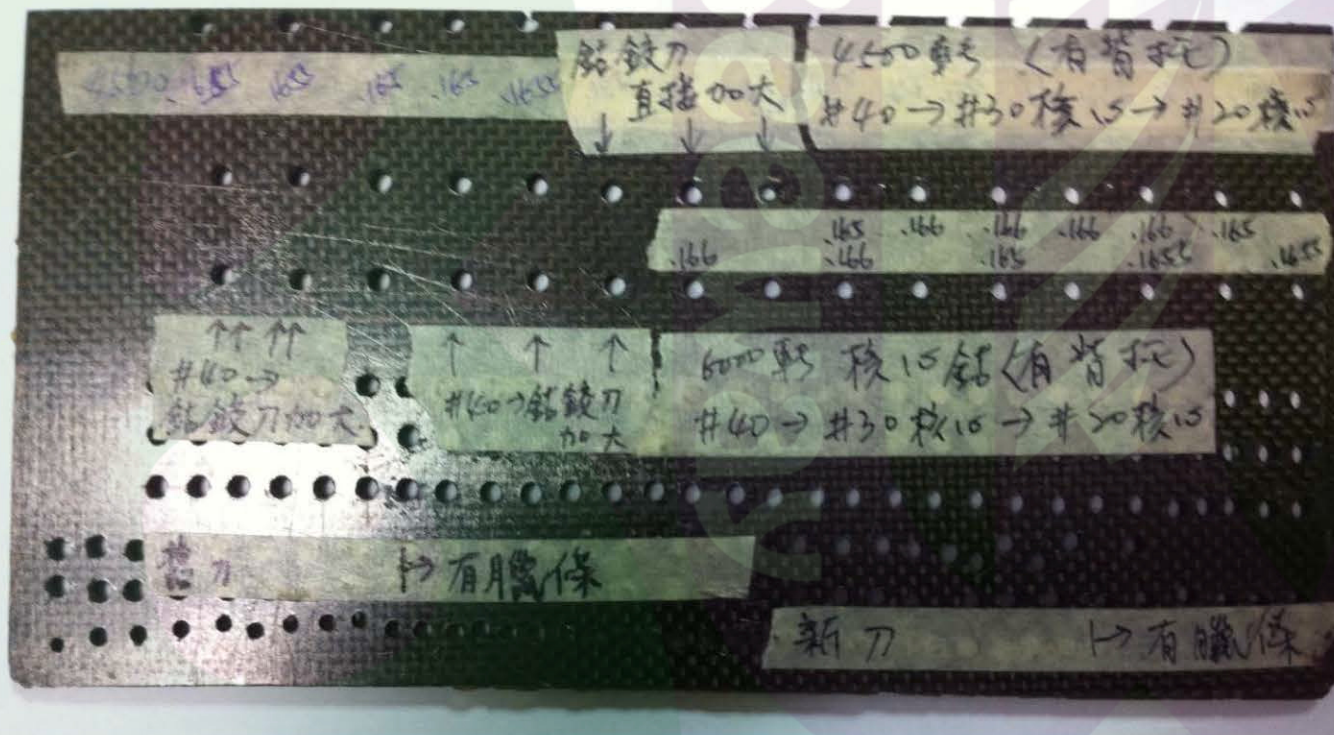 4500 .1655 .165 .165 .165 .1655
鉆鉸刀
直接加大
↓ ↓ ↓
4500轉（有背托）
#40→#30核15→#20核15
.165 .166 .166 .166 .166 .165
.166 .166 .165 .1655 .1655
↑↑ ↑↑
#40→
鉆鉸刀加大
↑ ↑ ↑
#40→鉆鉸刀
加大
6000轉 核15鉆（有背托）
#40→#30核15→#20核15
刀 ↦有臘條
新刀 ↦有臘條